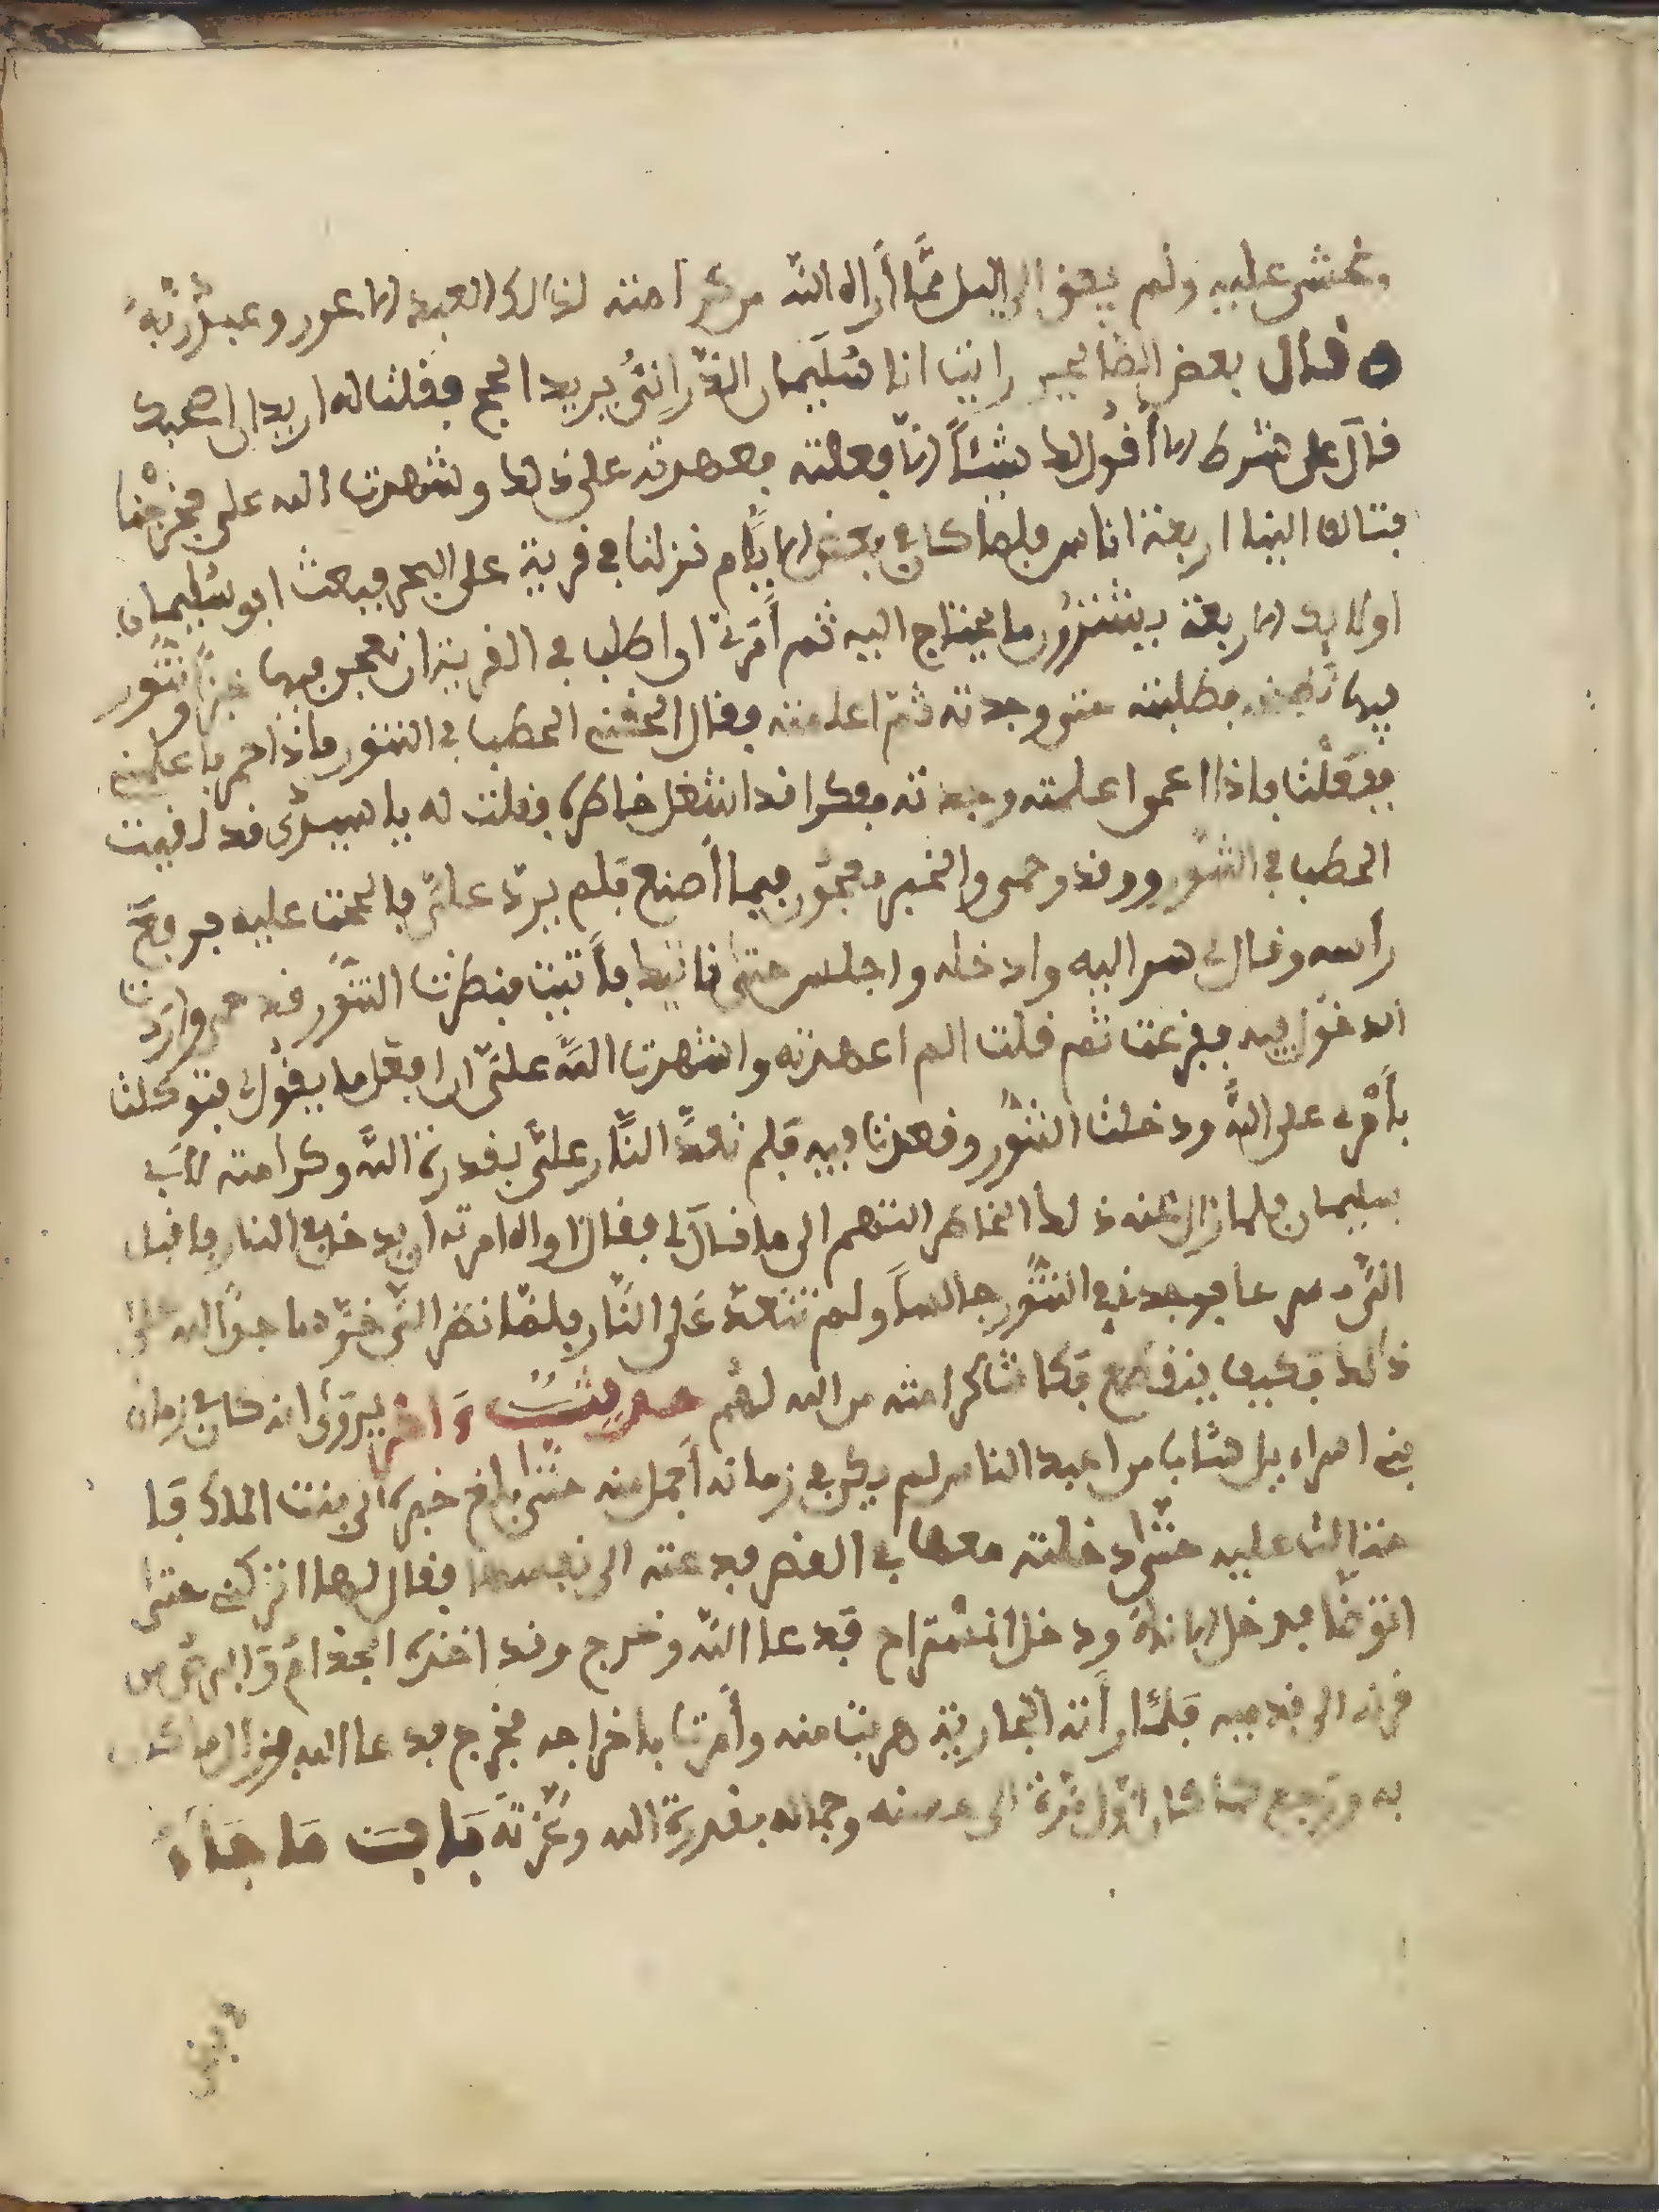 وغشى عليه ولم يعق الى اليل ممَّا أراه الله من كرامته لذالك العبد الاعور وعبدٌ ربّه
قال بعض الصَّالحين رايت ابا سُليمان الدّرانيُّ يريد الحج فقلت له اريد ان اصحبك
قال على شرط الا أقول لك شيئاً الاّ فعلته فعهدته على ذلك وشهدت الله على فخرجنا
فتالف الينا اربعة اناس فلما كان في بعض الايَّام نزلنا في قرية على البحر فبعث ابو سُليمان
اولايك الاربعة يشترون ما يحتاج اليه ثم أمرني ان اطلب في القرية ان نعجن فيها خبزاً وتنّور
فيها فطلبته حتى وجدته ثمّ اعلمته فقال احشى الحطب في التنور فاذا حم فاعلمني
ففعَلْت فاذا اعلمته وجدته مفكرا قد اشتغل خاطره فقلت له يا سيدى قد القيت
الحطب في التنّور ووقد وحمى والخمير معجون فيما أصنع فلم يردّ علىّ فالححت عليه فرفع
رأسه وقال سر اليه وادخله واجلس حتى ناتيك فأتيت فنظرت التنّور قد حمى واردت
الدخول فيه ففزعت ثم قلت الم اعهدته واشهدت الله علىّ ان افعل ما يقول فتوكلت
بأمره على الله ودخلت التنّور وقعدت فيه فلم تعدُ النّار علىّ بقدرة الله وكرامته لأب
سليمان فلما زال عنه ذلك الخاطر التهم الى ما قال لى فقال اواه امرته ان يدخل في النار فاقبل
الىّ مسرعا فوجدني في التنّور جالساً ولم تتعدّ على النّار فلمّا نظر الىّ خرّ ساجداً لله على
ذلك فكيف ينقطع فكانت كرامته من الله لهم حديث واخر يروى انه كان في زمان
بني اسراءيل شاب من اعبد الناس لم يكن في زمانه أجمل منه حتى بلغ خبره الى بنت الملك فا
حتالت عليه حتى ادخلته معها في القصر فدعته الى نفسها فقال لها اتركني حتى
اتوضّا فدخل الاناء ودخل المستراح فدعا الله وخرج وقد اخذه الجذام والبرص من
قرنه الى قدميه فلمّا رأته الجارية هربت منه وأمرت باخراجه فخرج فدعا الله فزال ما كان
به ورجع كما كان اوّل مرّة الى حسنه وجماله بقدرة الله وعزّته باب ما جاء